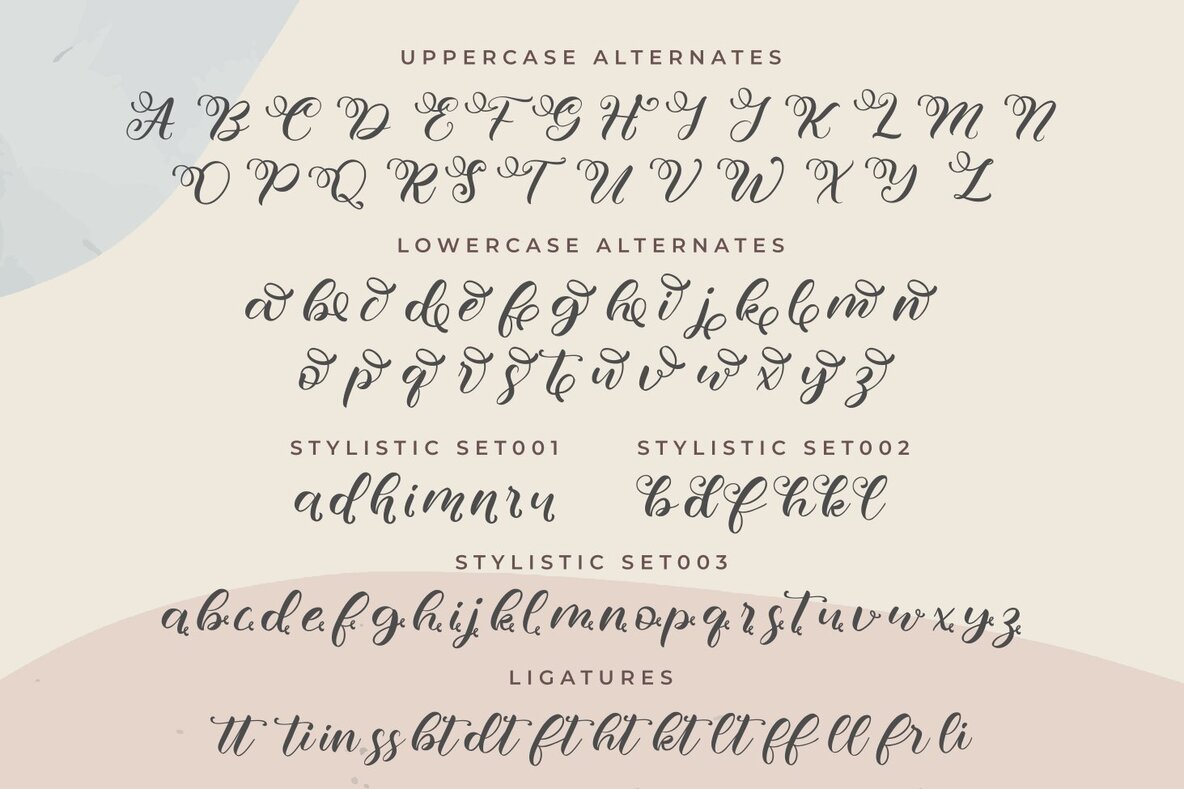 UPPERCASE ALTERNATES
A B C D E F G H I J K L M N
O P Q R S T U V W X Y Z
LOWERCASE ALTERNATES
a b c d e f g h i j k l m n
o p q r s t u v w x y z
STYLISTIC SET001
STYLISTIC SET002
a d h i m n r u
b d f h k l
STYLISTIC SET003
a b c d e f g h i j k l m n o p q r s t u v w x y z
LIGATURES
tt ti in ss bt dt ft ht kt lt ff ll fr li